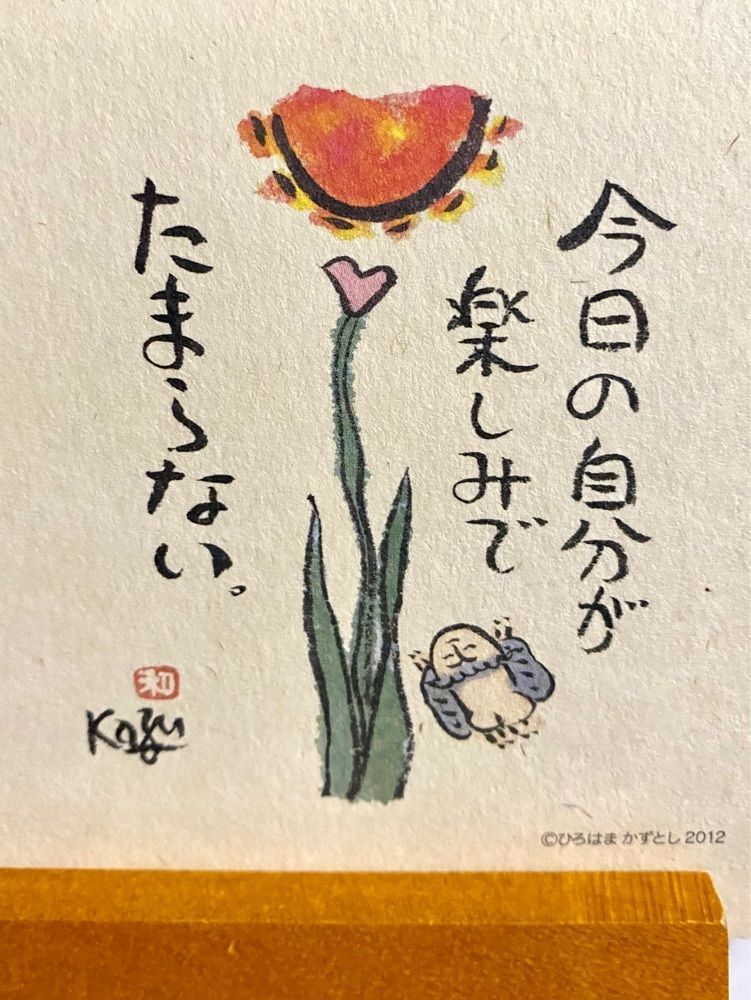 今日の自分が
楽しみで
たまらない。
和
Kazu
©ひろはま かずとし 2012